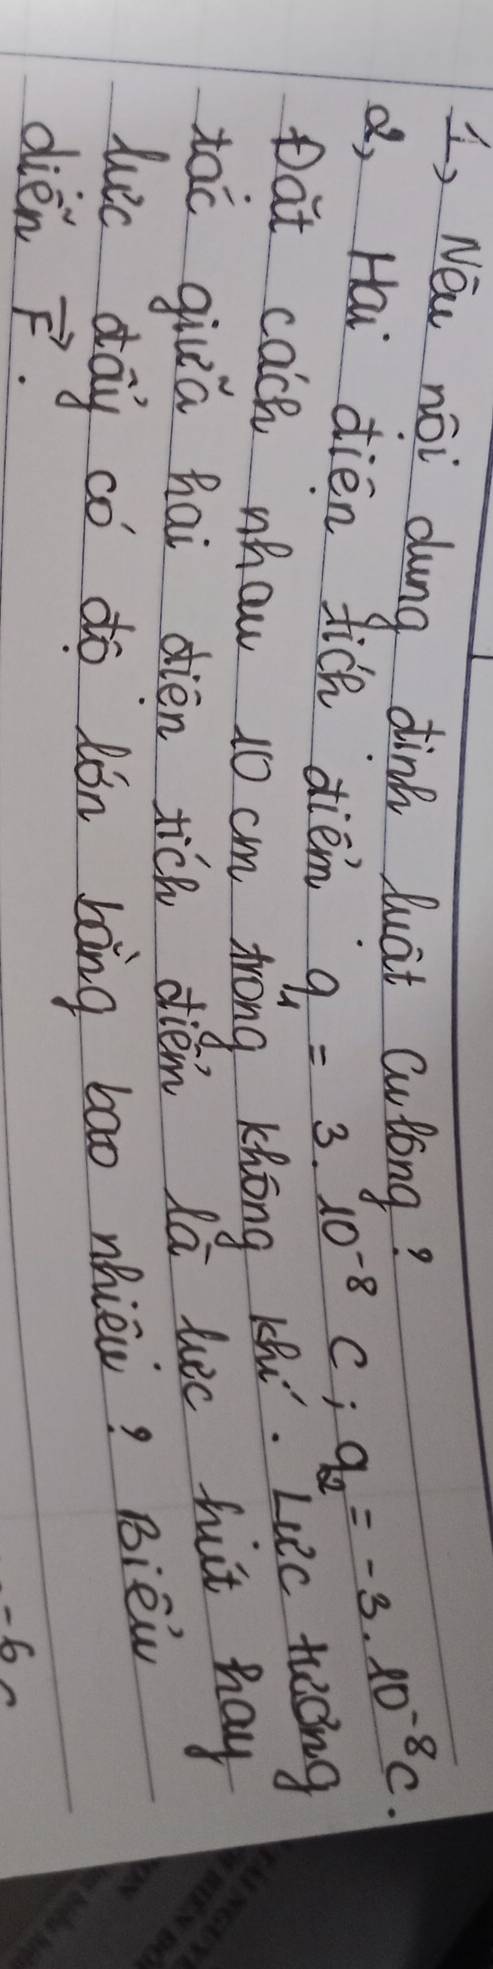 1, Nêu nội dung định luật Culông?
2, Hai điện tích điểm q₁ = 3.10⁻⁸ C ; q₂ = -3.10⁻⁸ C.
Đặt cách nhau 10 cm trong không khí. Lực tương
tác giữa hai điện tích điểm là lực hút hay
lực đẩy có độ lớn bằng bao nhiêu? Biểu
diễn F⃗.